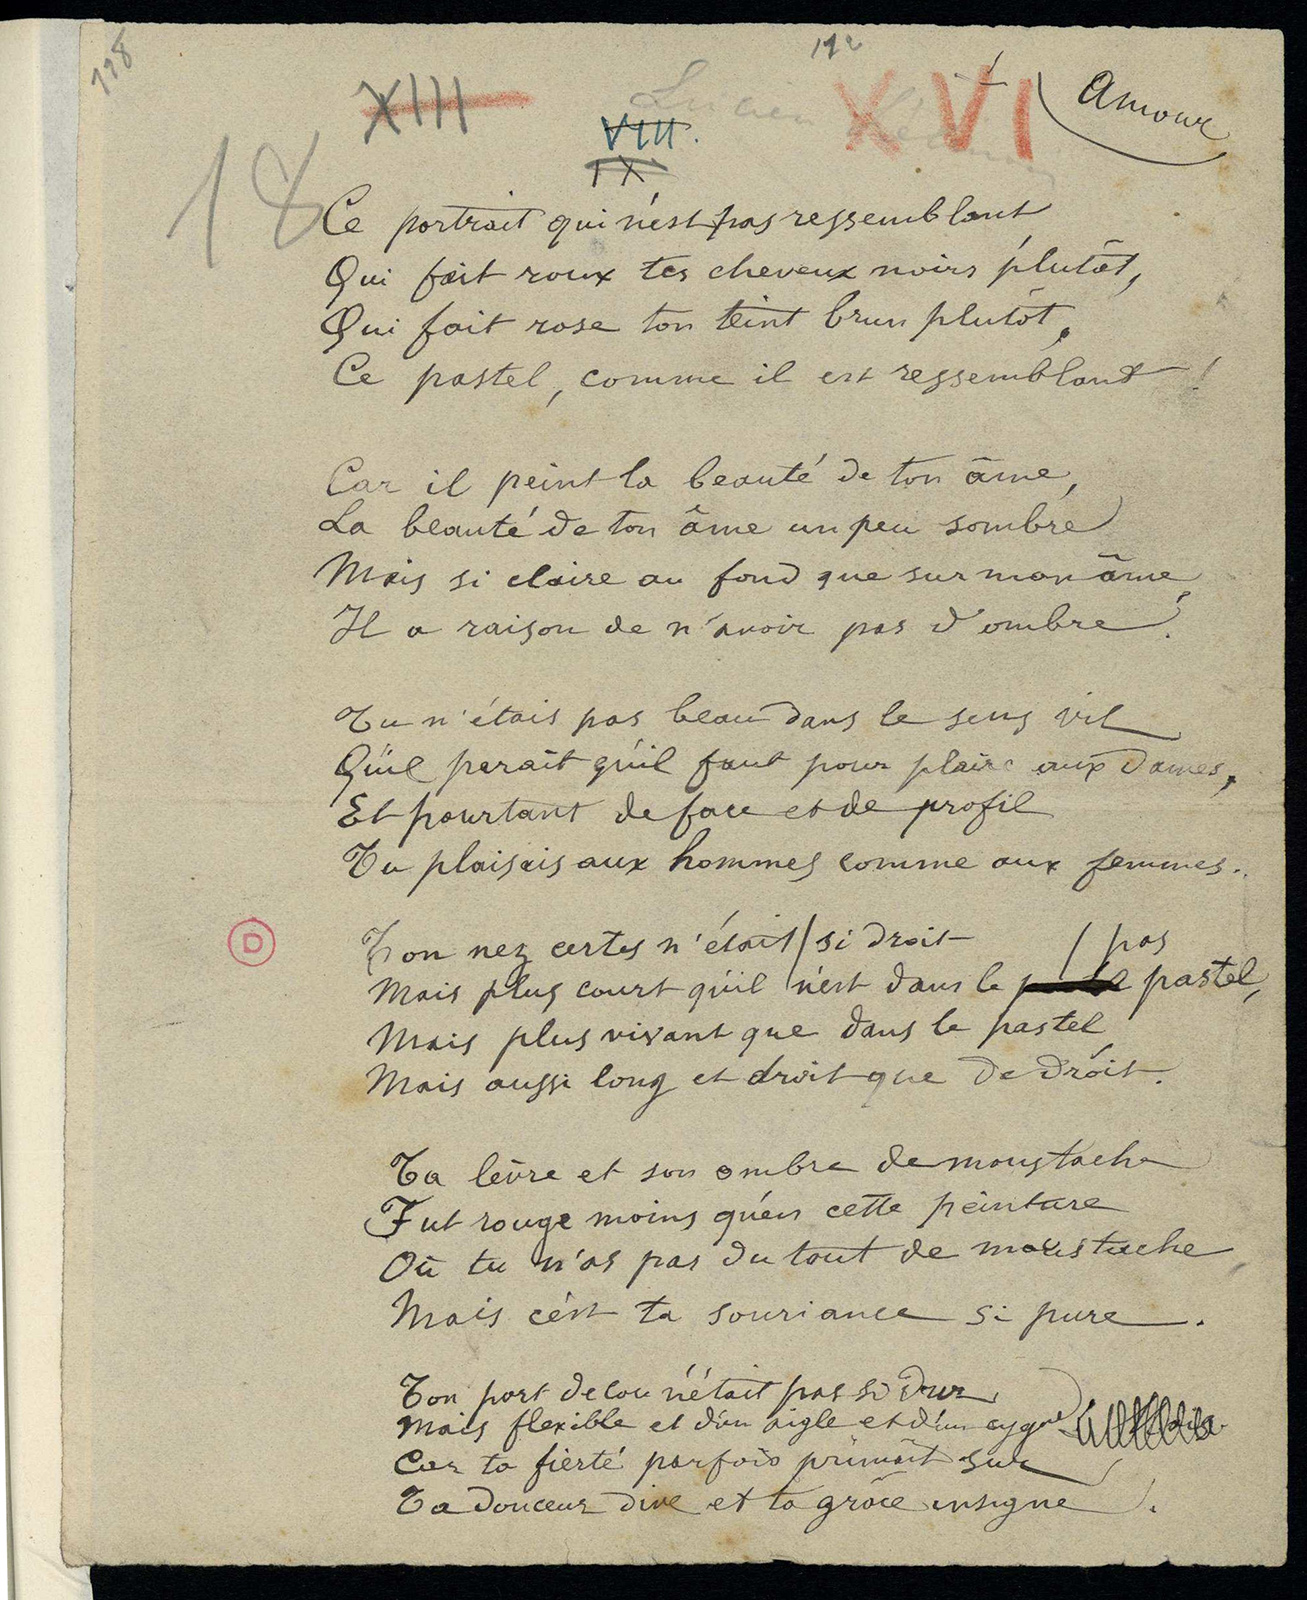 118
112
XIII
Lucien
XVI
Amour
VIII.
IX
18
Ce portrait qui n'est pas ressemblant
Qui fait roux tes cheveux noirs plutôt,
Qui fait rose ton teint brun plutôt,
Ce pastel, comme il est ressemblant !
Car il peint la beauté de ton âme,
La beauté de ton âme un peu sombre
Mais si claire au fond que sur mon âme,
Il a raison de n'avoir pas d'ombre.
Tu n'étais pas beau dans le sens vil
Qu'il paraît qu'il faut pour plaire aux dames,
Et pourtant de face et de profil
Tu plaisais aux hommes comme aux femmes.
D
Ton nez certes n'était / si droit / pas
Mais plus court qu'il n'est dans le pastel,
Mais plus vivant que dans le pastel
Mais aussi long et droit que de droit.
Ta lèvre et son ombre de moustache
Fut rouge moins qu'en cette peinture
Où tu n'as pas du tout de moustache
Mais c'est ta souriance si pure.
Ton port de cou n'était pas si dur,
Mais flexible et d'un aigle et d'un cygne,
Car ta fierté parfois primait sur
Ta douceur dive et ta grâce insigne.